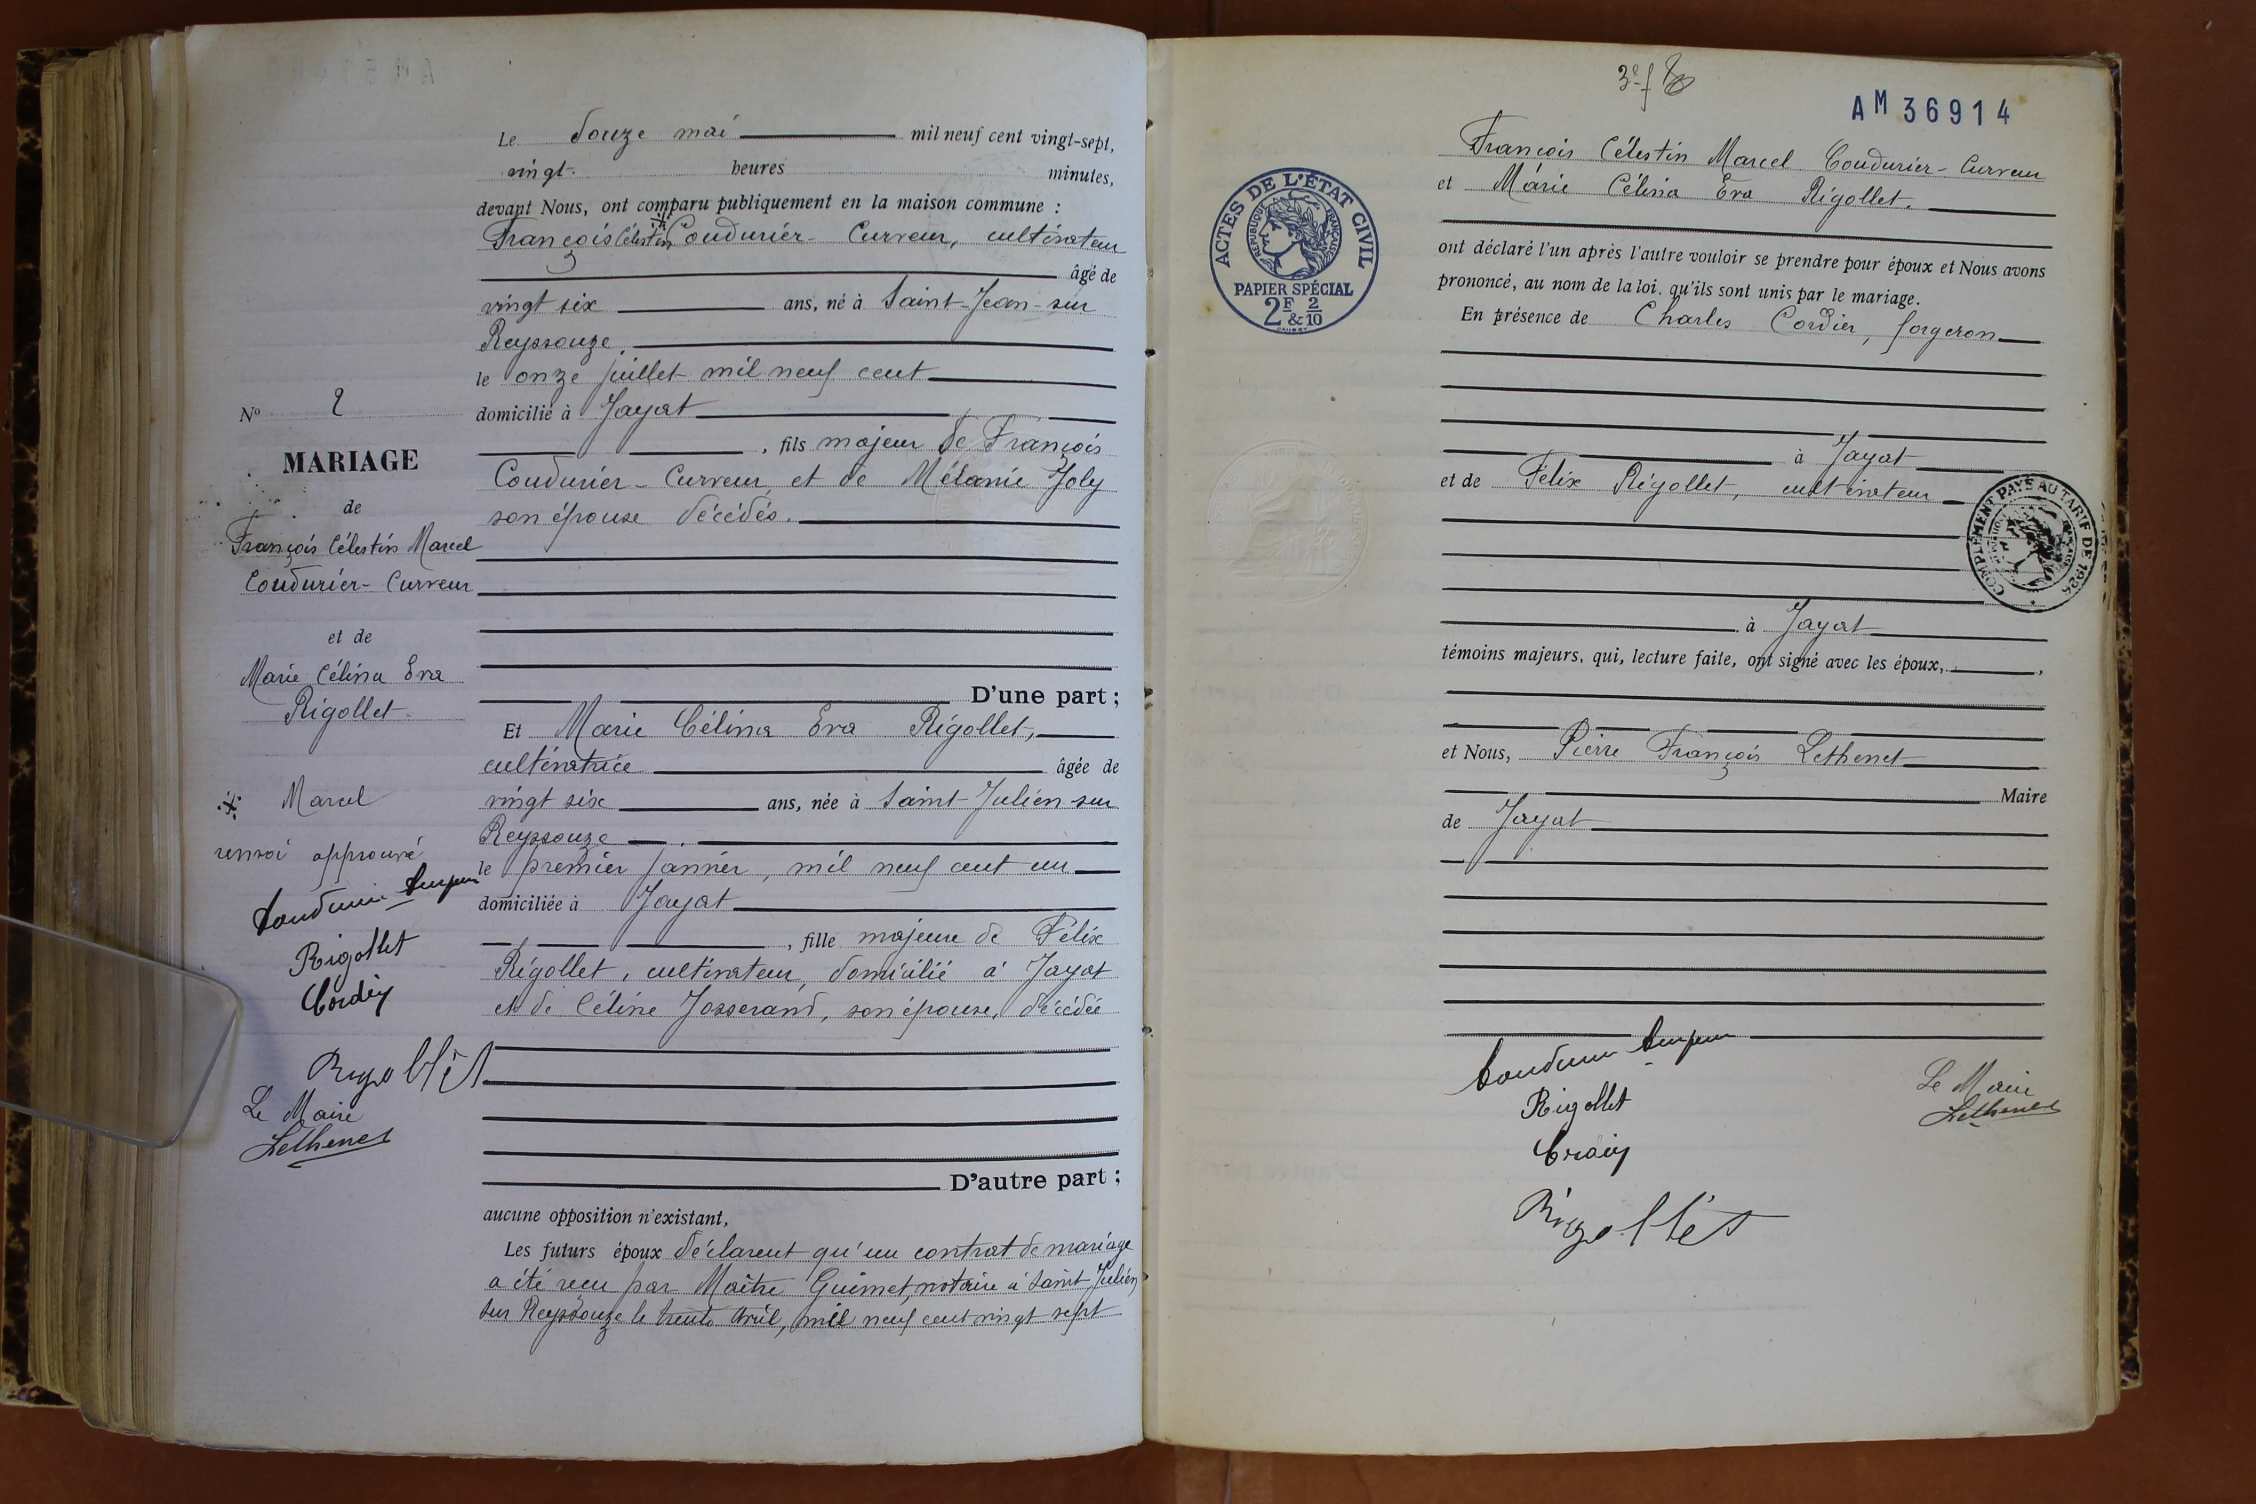 N° 2
MARIAGE
de
François Célestin Marcel
Coudurier-Curveur
et de
Marie Célina Eva
Rigollet.
Marcel
renvoi approuvé
Rigollet
Cordier
Rigollet
Le Maire
Lethenet
Le douze mai mil neuf cent vingt-sept,
vingt heures minutes,
devant Nous, ont comparu publiquement en la maison commune :
François Célestin Coudurier-Curveur, cultivateur
âgé de
vingt six ans, né à Saint-Jean-sur
Reyssouze,
le onze juillet mil neuf cent
domicilié à Jayat
, fils majeur de François
Coudurier-Curveur et de Mélanie Joly
son épouse décédés.
D'une part ;
Et Marie Célina Eva Rigollet,
cultivatrice âgée de
vingt six ans, née à Saint-Julien-sur
Reyssouze
le premier janvier, mil neuf cent un
domiciliée à Jayat
, fille majeure de Félix
Rigollet, cultivateur, domicilié à Jayat
et de Céline Josserand, son épouse, décédée
D'autre part ;
aucune opposition n'existant,
Les futurs époux déclarent qu'un contrat de mariage
a été reçu par Maître Guimet, notaire à Saint Julien
sur Reyssouze le trente avril, mil neuf cent vingt sept
AM 36914
ACTES DE L'ÉTAT CIVIL
RÉPUBLIQUE FRANÇAISE
PAPIER SPÉCIAL
2F & 2/10
François Célestin Marcel Coudurier-Curveur
et Marie Célina Eva Rigollet.
ont déclaré l'un après l'autre vouloir se prendre pour époux et Nous avons
prononcé, au nom de la loi, qu'ils sont unis par le mariage.
En présence de Charles Cordier, forgeron
à Jayat
et de Félix Rigollet, cultivateur
COMPLÉMENT PAYÉ AU TARIF DE 1926
à Jayat
témoins majeurs, qui, lecture faite, ont signé avec les époux,
et Nous, Pierre François Lethenet
Maire
de Jayat
Rigollet
Cordier
Rigollet
Le Maire
Lethenet